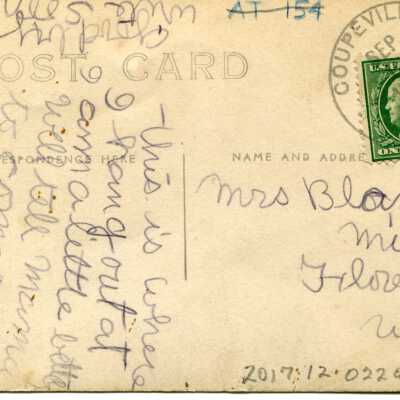 AT 154
OST CARD
COUPEVIL
SEP
U.S.
ON
ESPONDENCE HERE
NAME AND ADDRE
This is where
I hang out at
am a little bette
Well tell Mame
to
write soon
Mrs Bla
Mi
Flore
W
2017.12.022